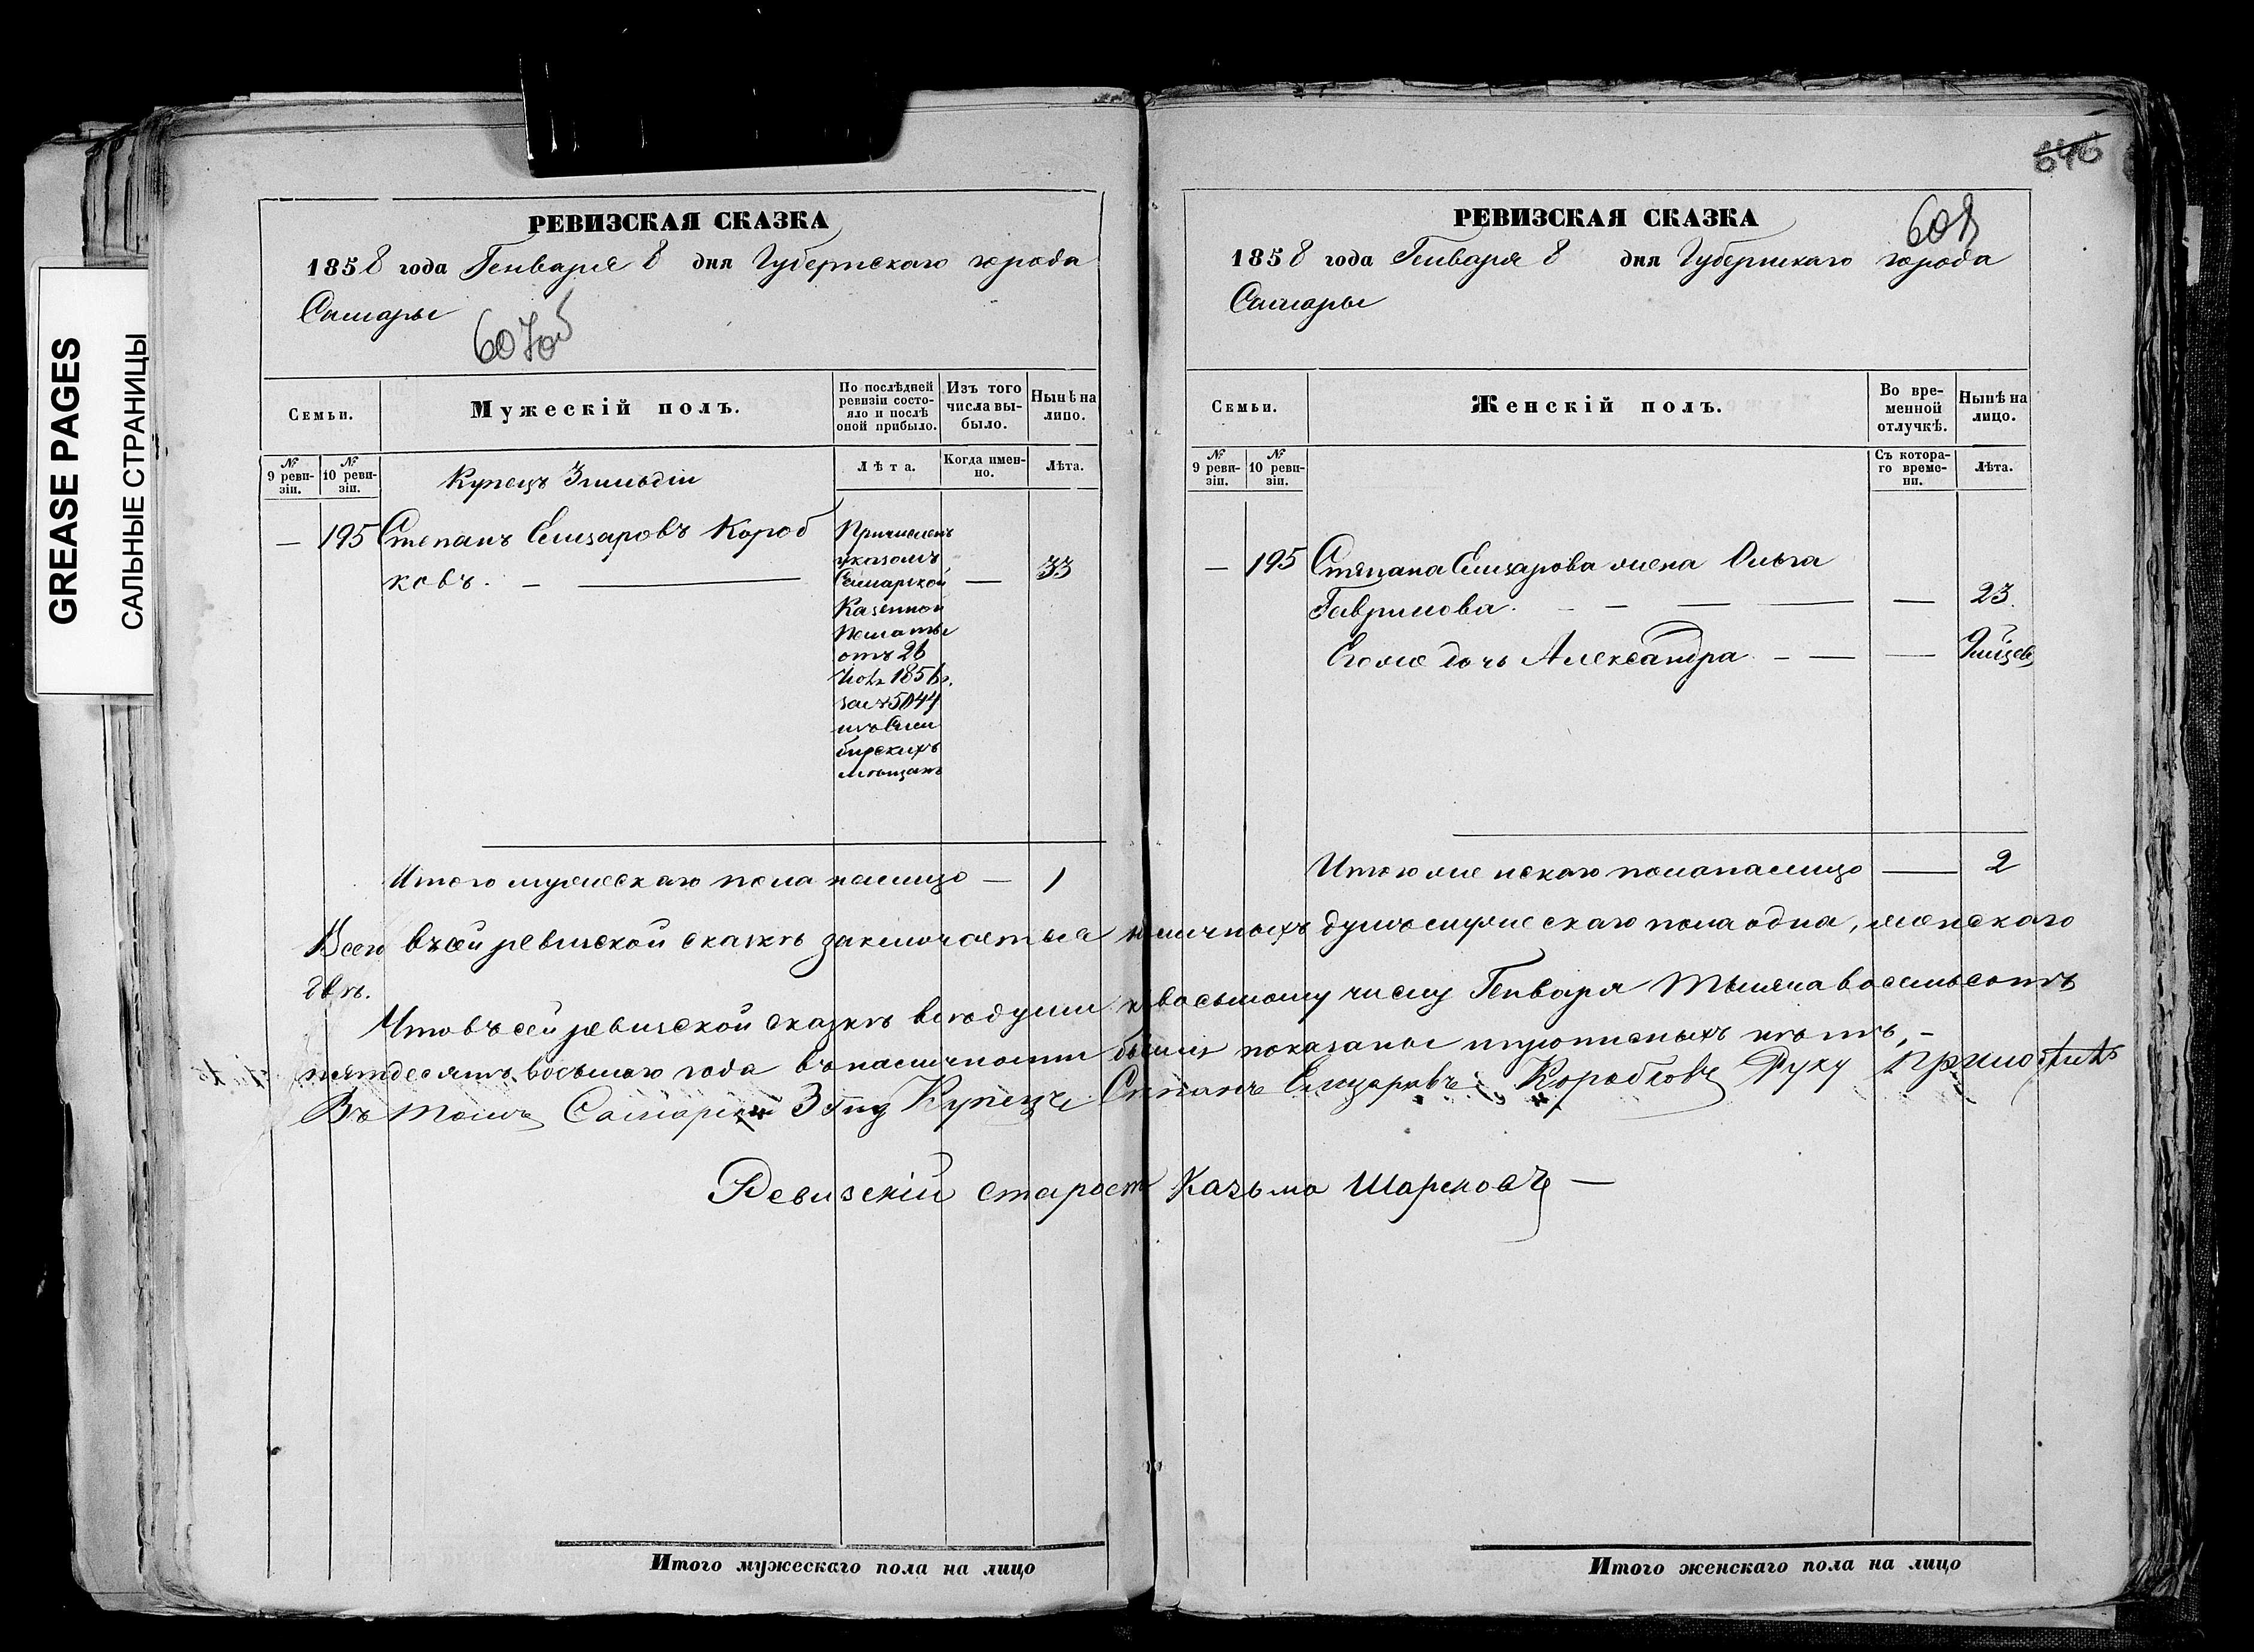 GREASE PAGES
САЛЬНЫЕ СТРАНИЦЫ
РЕВИЗСКАЯ СКАЗКА
1858 года Генваря 8 дня Губернскаго города
Самары
607об
Семьи.
Мужескій полъ.
По послѣдней ревизіи состояло и послѣ оной прибыло.
Изъ того числа выбыло.
Нынѣ на лицо.
№ 9 ревизіи.
№ 10 ревизіи.
Купецъ 3 гильдіи
Лѣта.
Когда именно.
Лѣта.
— 195 Степанъ Елизаровъ Короб
ковъ. — 33
Причисленъ
указомъ
Самарской
Казенной
Палаты
отъ 26
1856 г.
за № 5044
изъ Сим
бирскихъ
мѣщанъ
Итого мужескаго пола налицо — 1
646
608
РЕВИЗСКАЯ СКАЗКА
1858 года Генваря 8 дня Губернскаго города
Самары
Семьи.
Женскій полъ.
Во временной отлучкѣ.
Нынѣ на лицо.
№ 9 ревизіи.
№ 10 ревизіи.
Съ котораго времени.
Лѣта.
— 195 Степана Елизарова жена Ольга
Гаврилова. — — 23.
Его же дочь Александра — —
Итого женскаго пола налицо — 2
Всего въ сей ревизской сказкѣ заключается наличныхъ душъ мужескаго пола одна, женскаго
двѣ.
Что въ сей ревизской сказкѣ всѣ души к восьмому числу Генваря тысяча восемьсотъ
пятдесятъ восьмого года въ наличности бывшіе показаны и прописныхъ нѣтъ, —
Въ томъ Самарской 3 гид Купецъ Степанъ Елизаровъ Коробковъ Руку приложилъ
Ревизскій старост Казьма Шарековъ —
Итого мужескаго пола на лицо
Итого женскаго пола на лицо